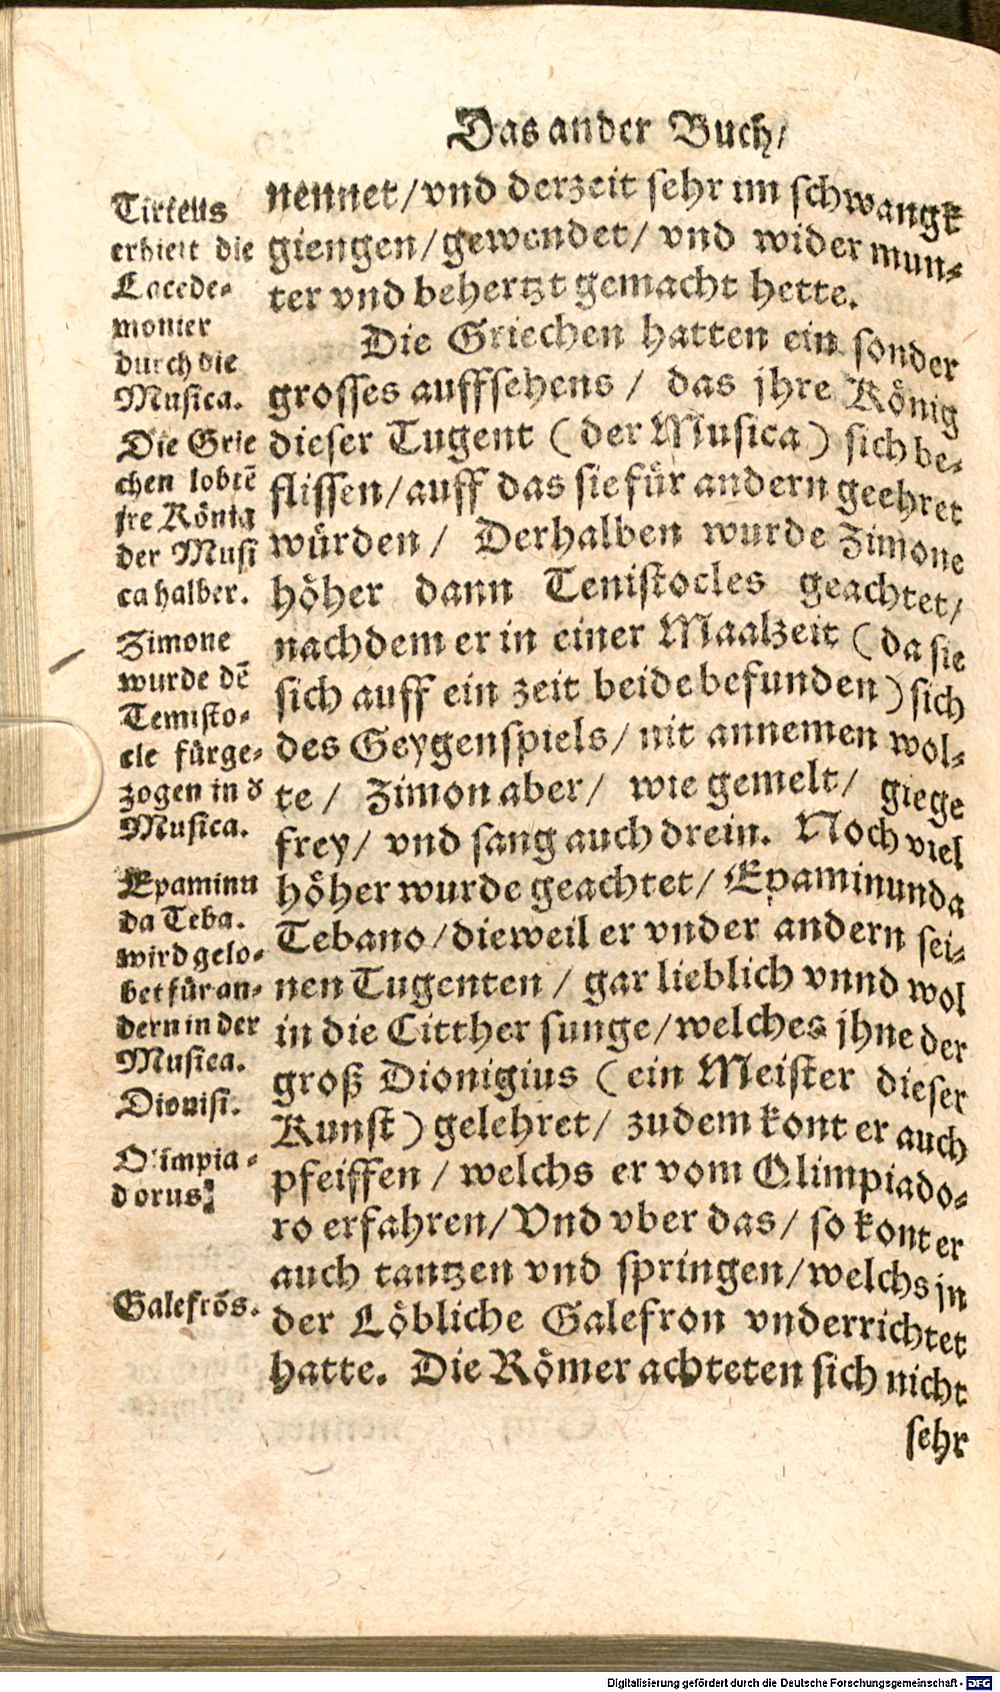 Das ander Buch/
nennet/vnd derzeit sehr im schwangk
giengen/gewendet/ vnd wider mun-
ter vnd behertzt gemacht hette.
Die Griechen hatten ein sonder
grosses auffsehens / das jhre König
dieser Tugent (der Musica) sich be-
flissen/auff das sie für andern geehret
würden / Derhalben wurde Zimone
höher dann Temistocles geachtet/
nachdem er in einer Maalzeit (da sie
sich auff ein zeit beide befunden) sich
des Geygenspiels/ nit annemen wol-
te / Zimon aber/ wie gemelt/ giege
frey/ vnd sang auch drein. Noch viel
höher wurde geachtet/ Epaminunda
Tebano/dieweil er vnder andern sei-
nen Tugenten / gar lieblich vnnd wol
in die Citther sunge/welches jhne der
groß Dionigius (ein Meister dieser
Kunst) gelehret/ zudem kont er auch
pfeiffen / welchs er vom Olimpiado-
ro erfahren/Vnd vber das/ so kont er
auch tantzen vnd springen/welchs jn
der Löbliche Galefron vnderrichtet
hatte. Die Römer achteten sich nicht
sehr
Tirteus
erhielt die
Lacede-
monier
durch die
Musica.
Die Grie
chen lobtē
jre König
der Musi
ca halber.
Zimone
wurde dē
Temisto-
cle fürge-
zogen in d
Musica.
Epaminu
da Teba.
wird gelo-
bet für an-
dern in der
Musica.
Dionisi.
Olimpia-
dorus.
Galefrōs.
Digitalisierung gefördert durch die Deutsche Forschungsgemeinschaft - DFG